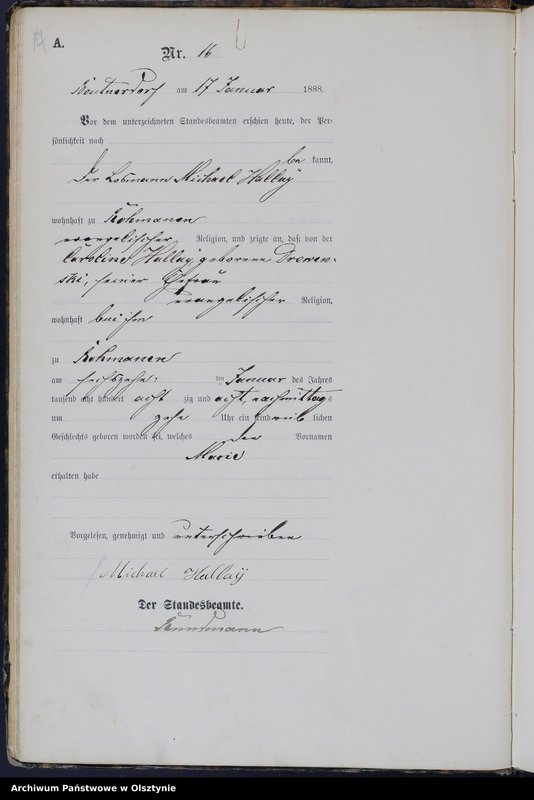 A.
Nr. 16
Beutnerdorf am 17 Januar 1888.
Vor dem unterzeichneten Standesbeamten erschien heute, der Per-
sönlichkeit nach
be kannt,
der Losmann Michael Hallaÿ
wohnhaft zu Rohmanen
evangelischer Religion, und zeigte an, daß von der
Caroline Hallaÿ geborenen Drewen-
ski, seiner Ehefrau
evangelischer Religion,
wohnhaft bei ihm
zu Rohmanen
am sechszehn- ten Januar des Jahres
tausend acht hundert acht zig und acht, nachmittags
um zehn Uhr ein Kind weib lichen
Geschlechts geboren worden sei, welches den Vornamen
Marie
erhalten habe
Vorgelesen, genehmigt und unterschrieben
Michael Hallaÿ
Der Standesbeamte.
Archiwum Państwowe w Olsztynie